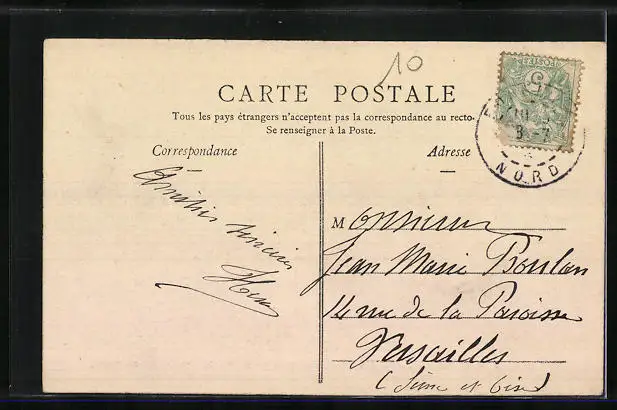 10
CARTE POSTALE
Tous les pays étrangers n'acceptent pas la correspondance au recto.
Se renseigner à la Poste.
Correspondance
Adresse
Amitiés sincères
Monsieur
Jean Marie
14 rue de la Paroisse
Versailles
(Seine et Oise)
5
NORD